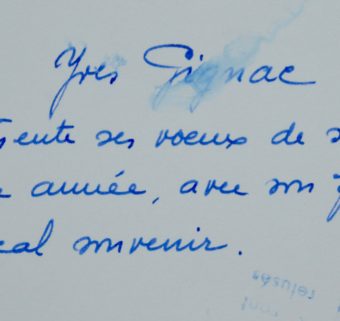 Yves Gignac
sente ses voeux de
année, avec son
cal souvenir.
refusés